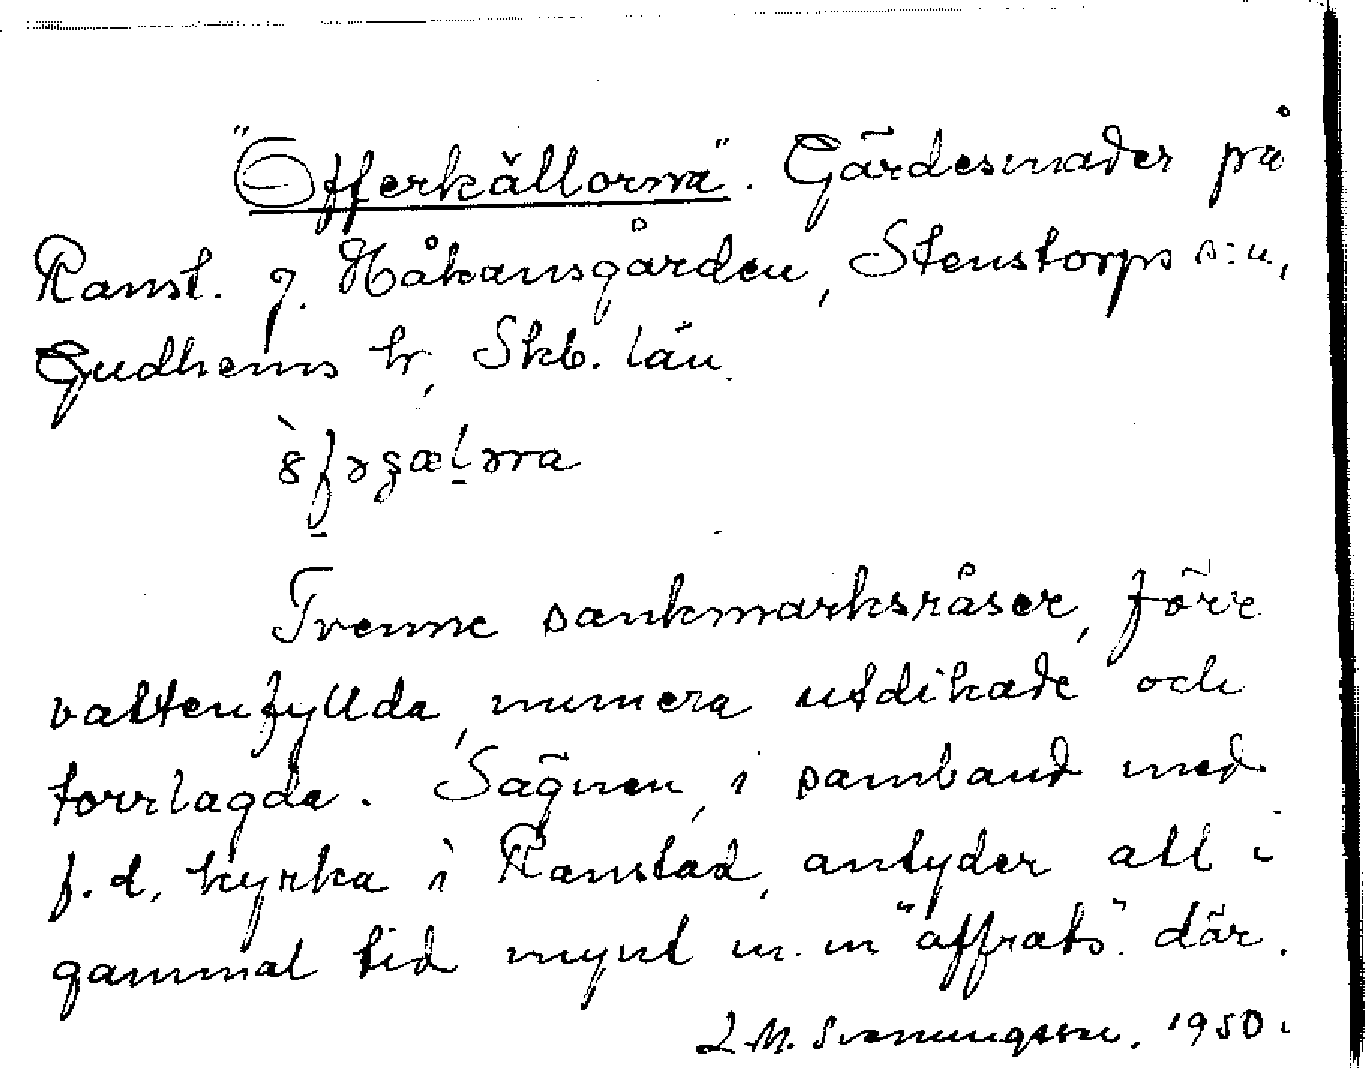 "Offerkällorna". Gärdesmader på
Ranst. g. Håkansgården, Stenstorps s:n,
Gudhems hr, Skb. län.
Tvenne sankmarksråser, förr
vattenfyllda, numera utdikade och
torrlagda. Sägnen, i samband med
f.d. kyrka i Ranstad, antyder att i
gammal tid mynt m.m "offrats". där.
L.M. Svenungsson. 1950.